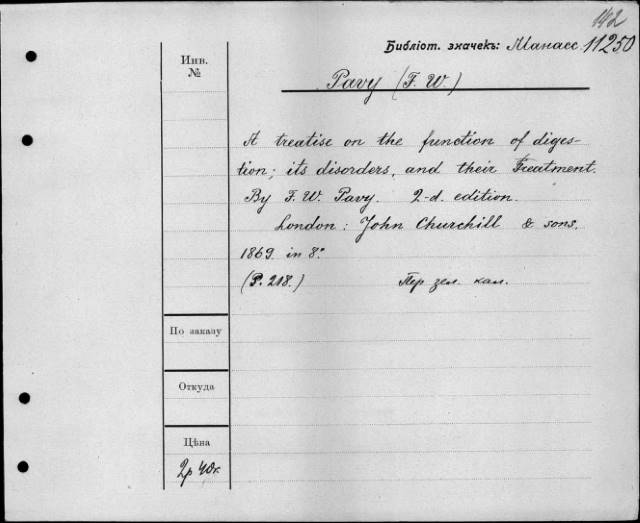 142
Библіот. значекъ: Манасс. 11250
Инв.
№
Pavy (F. W.)
A treatise on the function of diges-
tion; its disorders, and their Treatment.
By F. W. Pavy. 2-d. edition.
London: John Churchill & sons.
1869. in 8º
(P. 218.) Пер. зел. кал.
По заказу
Откуда
Цѣна
2р 40к.